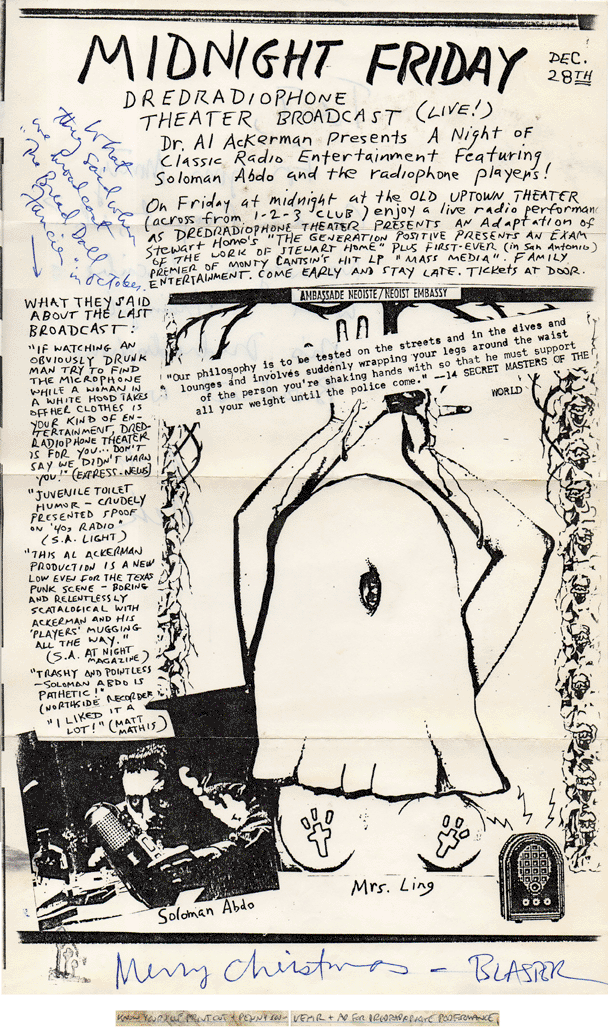 MIDNIGHT FRIDAY
DEC.
28TH
DREDRADIOPHONE
THEATER BROADCAST (LIVE!)
Dr. Al Ackerman Presents A Night of
Classic Radio Entertainment Featuring
Soloman Abdo and the radiophone players!
On Friday at midnight at the OLD UPTOWN THEATER
(across from 1-2-3 CLUB) enjoy a live radio performanc
AS DREDRADIOPHONE THEATER PRESENTS AN Adaptation of
Stewart Home's "THE GENERATION POSITIVE PRESENTS AN EXAM
OF THE WORK OF STEWART HOME" PLUS FIRST-EVER (in San Antonio)
PREMIER OF MONTY CANTSIN'S HIT LP "MASS MEDIA". FAMILY
ENTERTAINMENT. COME EARLY AND STAY LATE. TICKETS AT DOOR.
What
they said when
we broadcast
"The Bread Doll
Fancier" in October.
WHAT THEY SAID
ABOUT THE LAST
BROADCAST:
"IF WATCHING AN
OBVIOUSLY DRUNK
MAN TRY TO FIND
THE MICROPHONE
WHILE A WOMAN IN
A WHITE HOOD TAKES
OFF HER CLOTHES IS
YOUR KIND OF EN-
TERTAINMENT, DRED-
RADIOPHONE THEATER
IS FOR YOU... DON'T
SAY WE DIDN'T WARN
YOU!" (EXPRESS-NEWS)
"JUVENILE TOILET
HUMOR – CRUDELY
PRESENTED SPOOF
ON '40s RADIO"
(S.A. LIGHT)
"THIS AL ACKERMAN
PRODUCTION IS A NEW
LOW EVEN FOR THE TEXAS
PUNK SCENE – BORING
AND RELENTLESSLY
SCATALOGICAL WITH
ACKERMAN AND HIS
'PLAYERS' MUGGING
ALL THE WAY."
(S.A. AT NIGHT
MAGAZINE)
"TRASHY AND POINTLESS
–SOLOMAN ABDO IS
PATHETIC!"
(NORTHSIDE RECORDER)
"I LIKED IT A
LOT!" (MATT
MATHIS)
AMBASSADE NEOISTE/NEOIST EMBASSY
"Our philosophy is to be tested on the streets and in the dives and
lounges and involves suddenly wrapping your legs around the waist
of the person you're shaking hands with so that he must support
all your weight until the police come." —14 SECRET MASTERS OF THE
WORLD
Soloman Abdo
Mrs. Ling
Merry Christmas – BLASTER